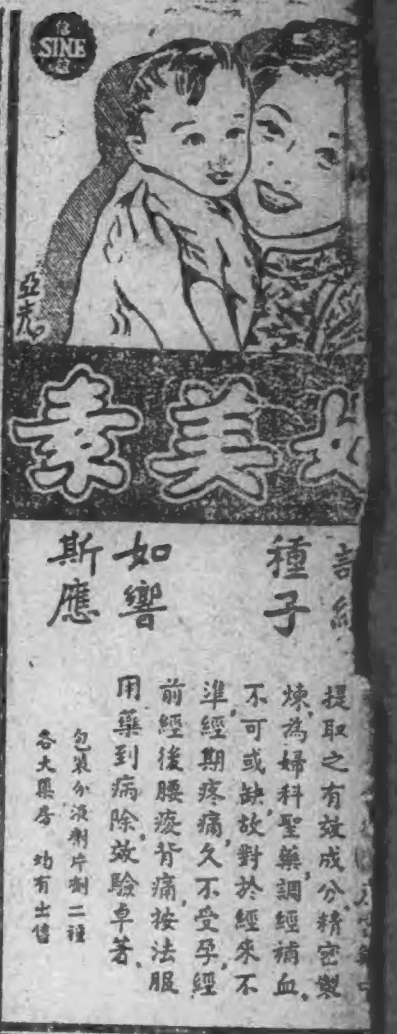 信
SINE
誼
亞光
美素
調經
種子
如響
斯應
提取之有效成分，精密製
煉，為婦科聖藥，調經補血，
不可或缺，故對於經來不
準，經期疼痛，久不受孕，經
前經後腰痠背痛，按法服
用，藥到病除，效驗卓著。
包裝分液劑片劑二種
各大藥房均有出售